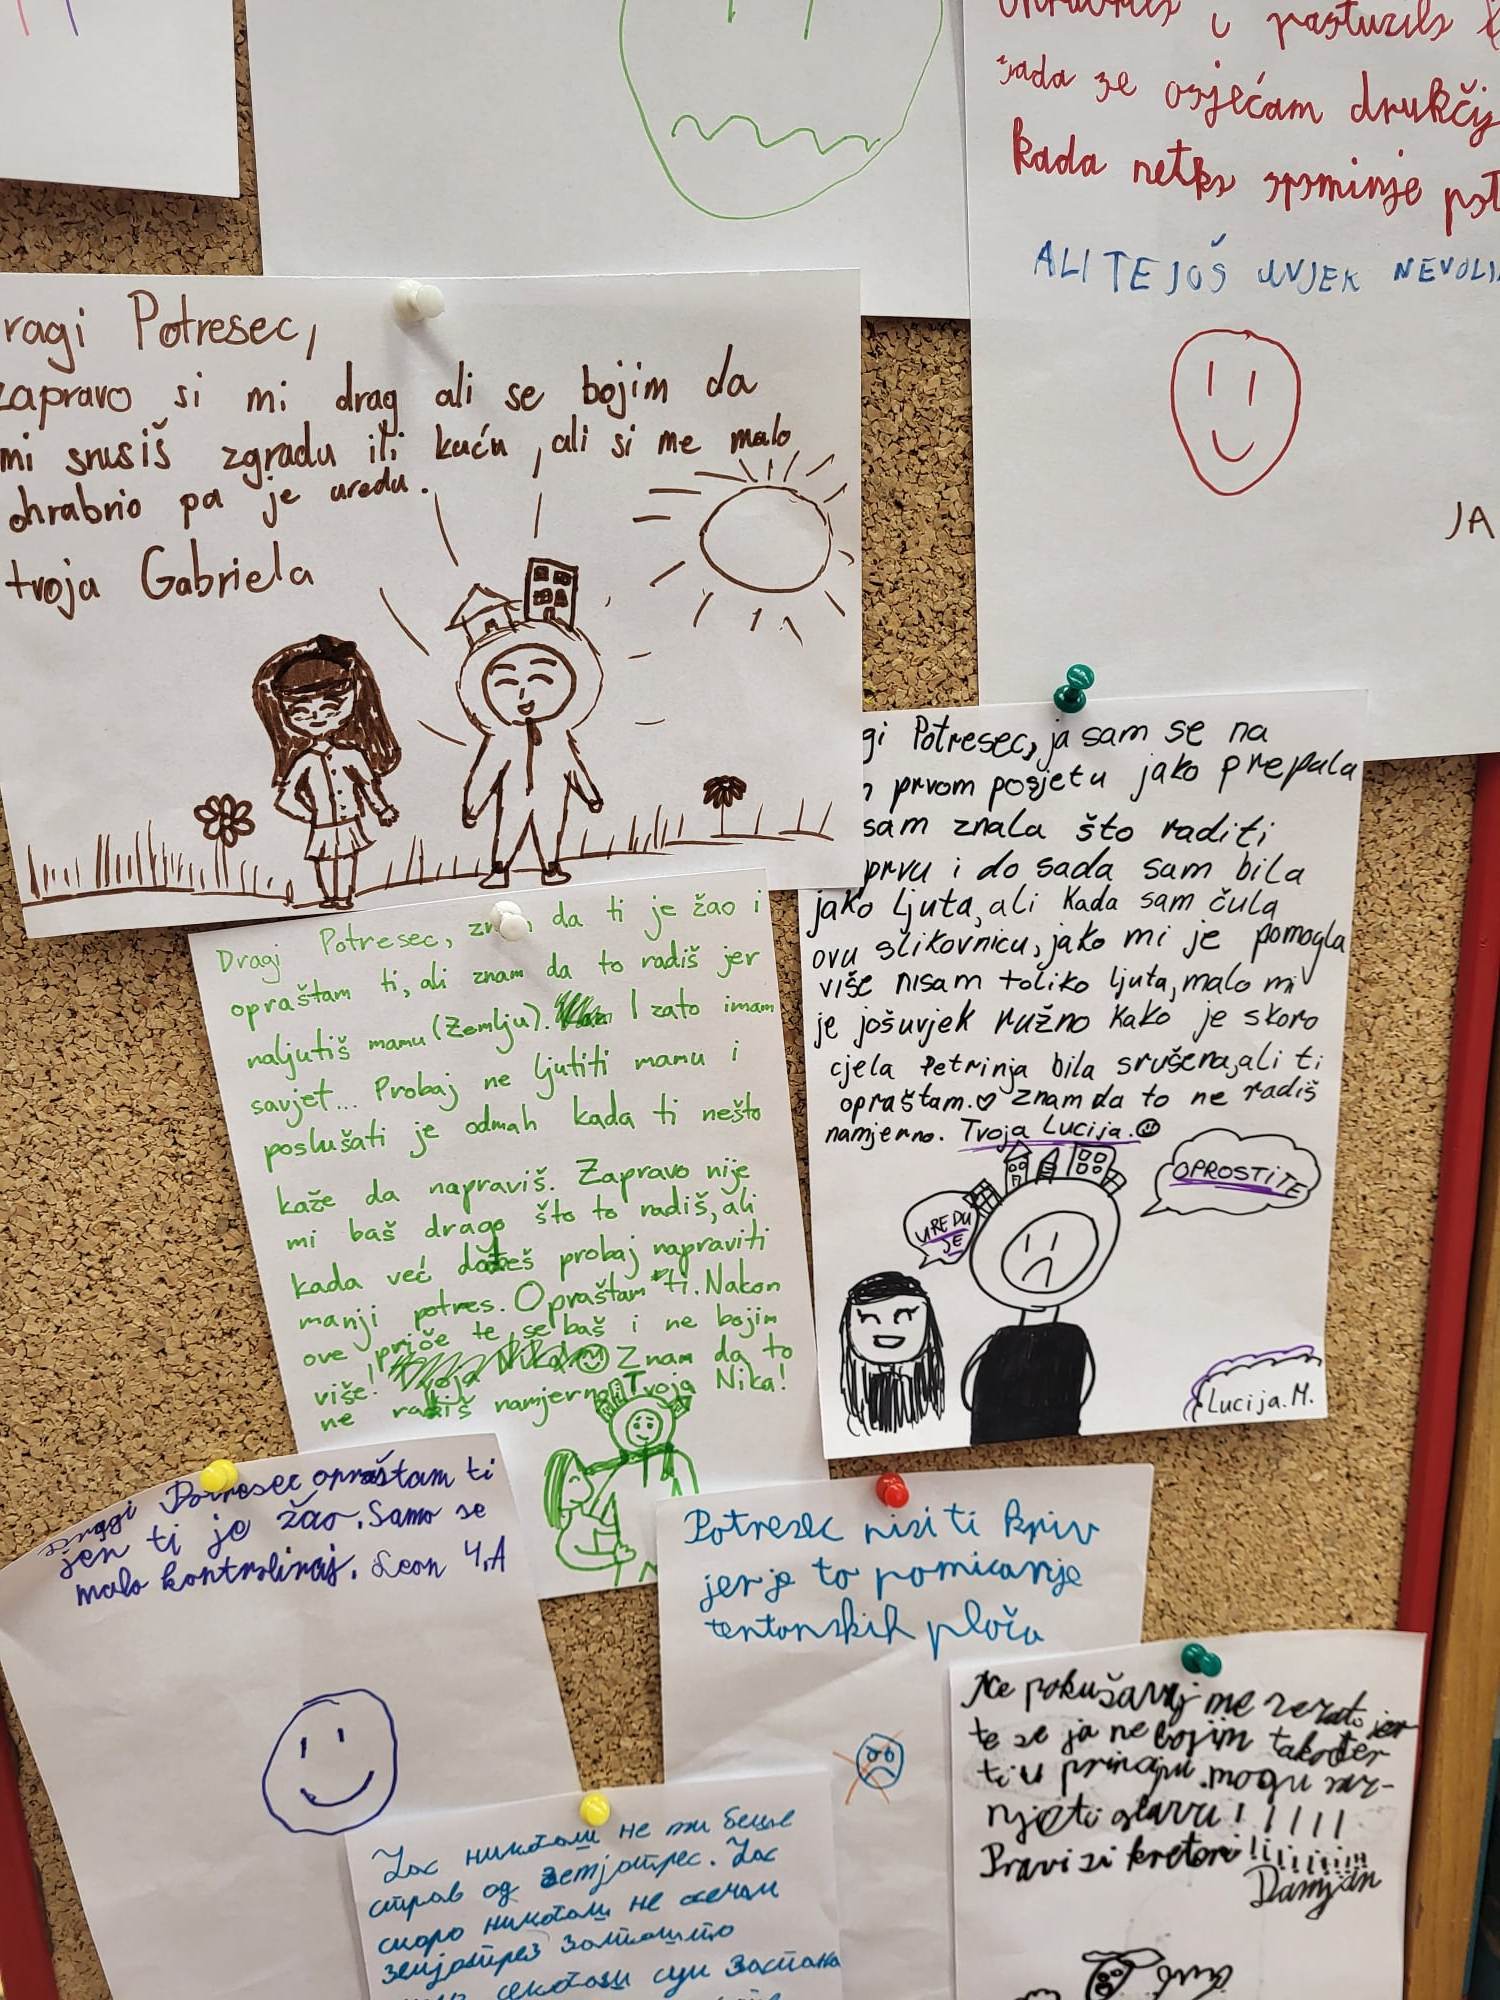 i
sada se osjećam
kada netko spominje
ALI TE JOŠ UVJEK
JA
Potresec,
zapravo si mi drag ali se bojim da
mi srusiš zgradu ili kuću, ali si me malo
ohrabrio pa je uredu.
tvoja Gabriela
Potresec, ja sam se na
prvom posjetu jako prepala
sam znala što raditi
i do sada sam bila
jako ljuta, ali kada sam čula
ovu slikovnicu, jako mi je pomogla
više nisam toliko ljuta, malo mi
je jošuvjek ružno kako je skoro
cjela Petrinja bila srušena, ali ti
opraštam.♡ Znam da to ne radiš
namjerno. Tvoja Lucija.☺
OPROSTITE
UREDU
JE
Lucija.M.
Dragi Potresec, da ti je žao i
opraštam ti, ali znam da to radiš jer
naljutiš mamu (Zemlju). I zato imam
savjet... Probaj ne ljutiti mamu i
poslušati je odmah kada ti nešto
kaže da napraviš. Zapravo nije
mi baš drago što to radiš, ali
kada već probaj napraviti
manji potres. Opraštam ti. Nakon
ove priče te se baš i ne bojim
više! Znam da to
ne radiš namjerno. Tvoja Nika!
Dragi Potresec opraštam ti
jen ti je žao. Samo se
malo kontroliraj. Leon 4.A
Potresec nisi ti kriv
jer je to pomicanje
tentonskih ploča
Ne pokušavaj me zezato jer
te se ja ne bojim također
ti u principu mogu raz-
glavu !!!!!
Pravi si kreten
Damjan
Јас никогаш не ми беше
страв од земјотрес. Јас
скоро никогаш не осеќам